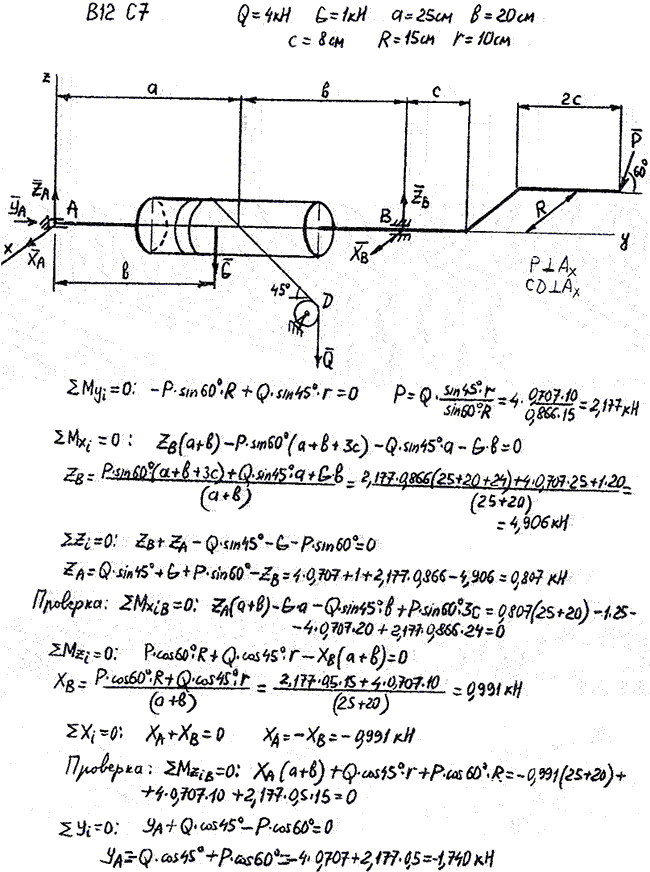 В12 С7 Q=4кН G=1кН a=25см в=20см
c=8см R=15см r=10см
z
a в c 2c
P̄
60°
Z̄A
ȲA A
Z̄B
B
R
x X̄A
X̄B
y
в
Ḡ
P⊥Ax
CD⊥Ax
45° D
Q̄
ΣMyi=0: -P·sin60°·R+Q·sin45°·r=0 P=Q·sin45°·r/sin60°R=4·0,707·10/0,866·15=2,177кН
ΣMxi=0: ZB(a+в)-P·sin60°(a+в+3c)-Q·sin45°·a-G·в=0
ZB=P·sin60°(a+в+3c)+Q·sin45°·a+G·в/(a+в)=2,177·0,866(25+20+24)+4·0,707·25+1·20/(25+20)=
=4,906кН
ΣZi=0: ZB+ZA-Q·sin45°-G-P·sin60°=0
ZA=Q·sin45°+G+P·sin60°-ZB=4·0,707+1+2,177·0,866-4,906=0,807 кН
Проверка: ΣMxiB=0: ZA(a+в)-G·a-Q·sin45°·в+P·sin60°·3c=0,807(25+20)-1·25-
-4·0,707·20+2,177·0,866·24=0
ΣMzi=0: P·cos60°·R+Q·cos45°·r-XB(a+в)=0
XB=P·cos60°·R+Q·cos45°·r/(a+в)=2,177·0,5·15+4·0,707·10/(25+20)=0,991 кН
ΣXi=0: XA+XB=0 XA=-XB=-0,991 кН
Проверка: ΣMziB=0: XA(a+в)+Q·cos45°·r+P·cos60°·R=-0,991(25+20)+
+4·0,707·10+2,177·0,5·15=0
ΣYi=0: YA+Q·cos45°-P·cos60°=0
YA=Q·cos45°+P·cos60°=-4·0,707+2,177·0,5=-1,740 кН